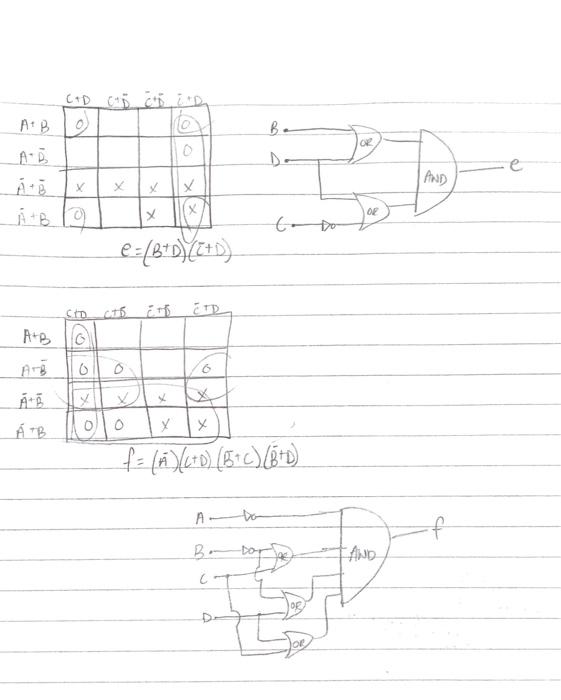 C+D C+D̄ C̄+D̄ C̄+D
A+B 0 0
A+B̄ 0
Ā+B̄ x x x x
Ā+B 0 x x
e=(B+D)(C̄+D)
B
D
C
OR
OR
AND
e
C+D C+D̄ C̄+D̄ C̄+D
A+B 0
A+B̄ 0 0 0
Ā+B̄ x x x x
Ā+B 0 0 x x
f=(Ā)(C+D)(B̄+C)(B̄+D)
A
B
C
D
OR
OR
OR
AND
f